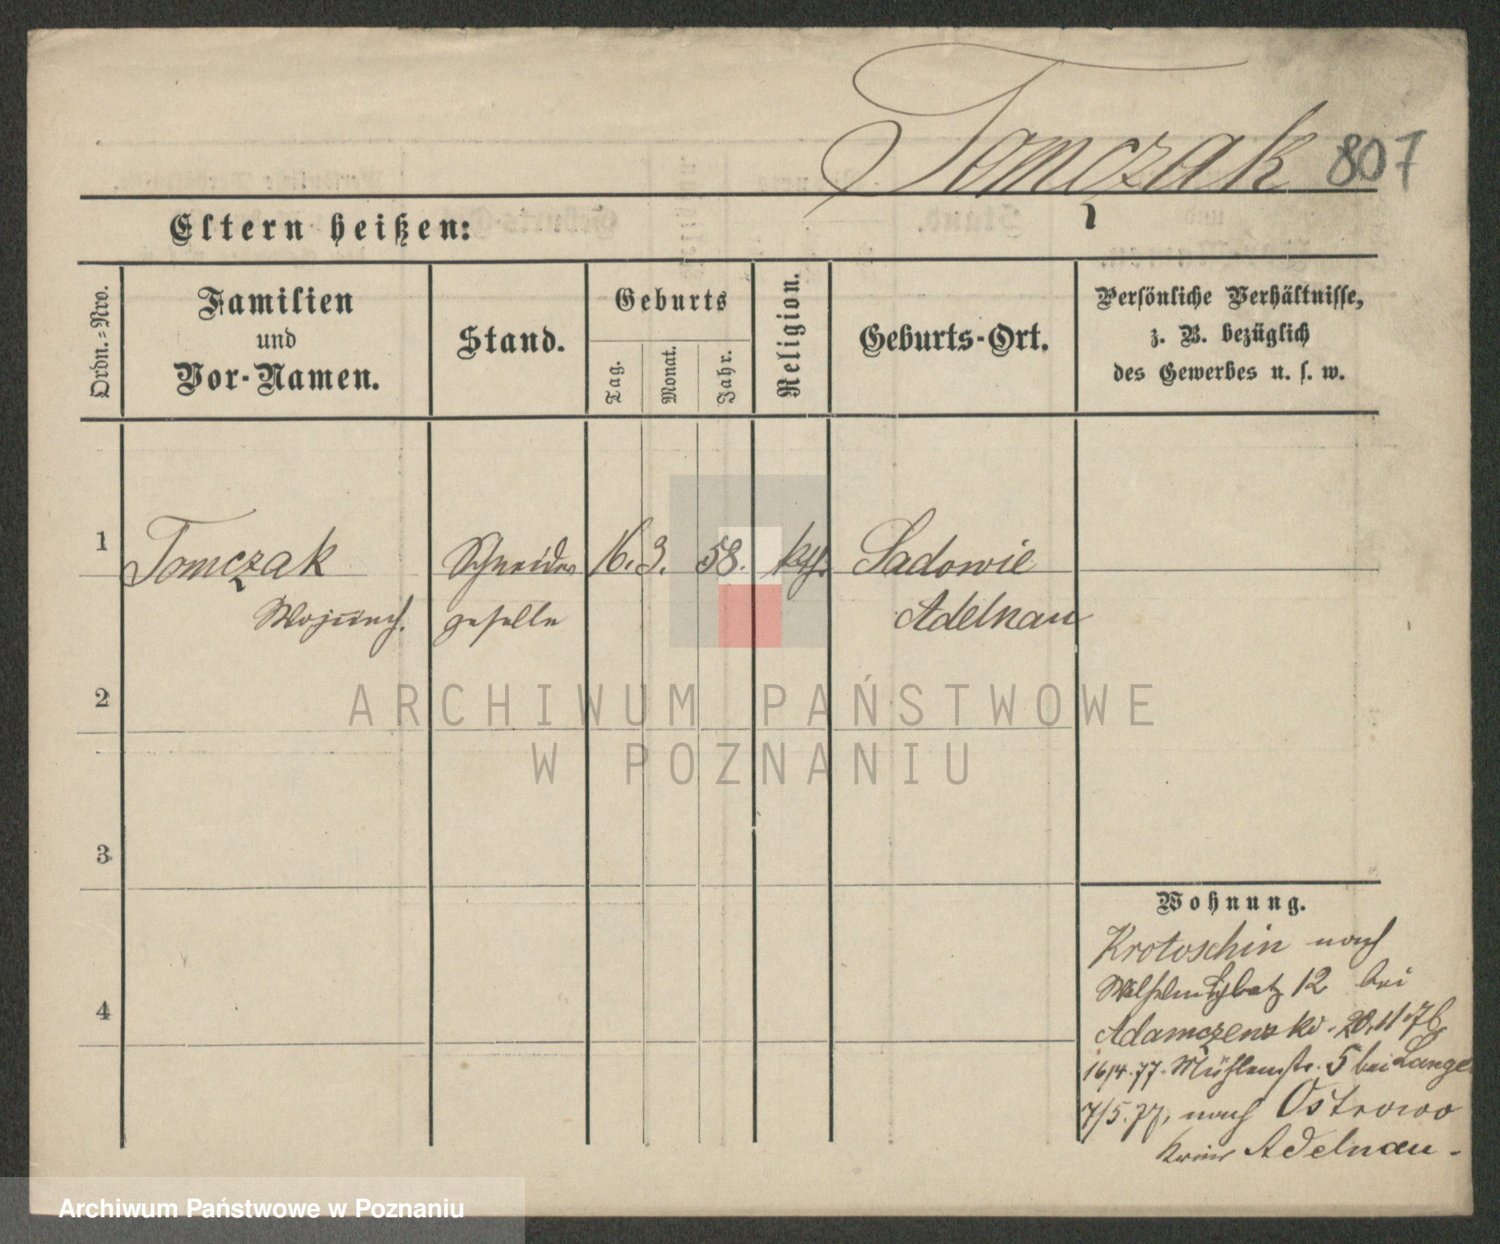 Tomczak 807
Eltern heißen:
Ordn.-Nro.
Familien
und
Vor-Namen.
Stand.
Geburts
Tag.
Monat.
Jahr.
Religion.
Geburts-Ort.
Persönliche Verhältnisse,
z. B. bezüglich
des Gewerbes u. s. w.
1 Tomczak Schneider 16. 3. 58. kth. Sadowie
geselle Adelnau
2
3
4
Wohnung.
Krotoschin nach
Wilhelmsplatz 12 bei
20.11.76
16/4.77. Mühlenstr. 5 bei Lange
7/5.77, nach Ostrowo
Kreis Adelnau.
ARCHIWUM PAŃSTWOWE
W POZNANIU
Archiwum Państwowe w Poznaniu